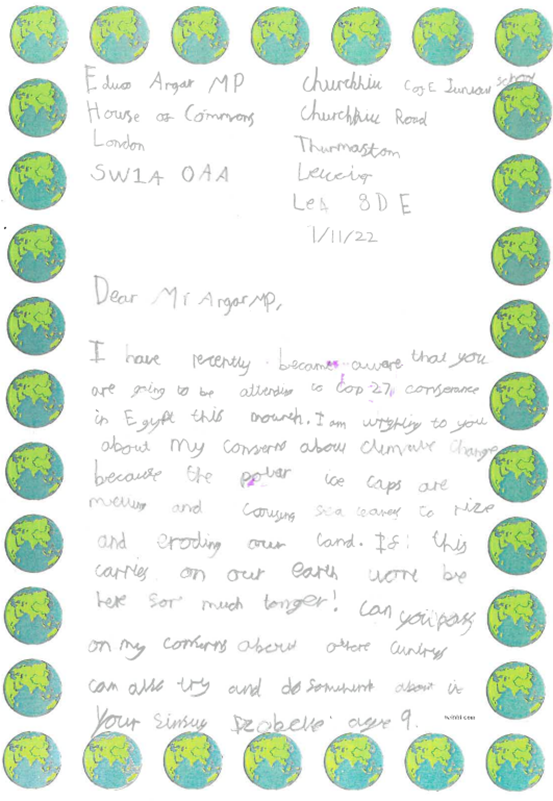 Eduo Argar MP
House of Commons
London
SW1A 0AA
Churchhill CofE Junior school
Churchhill Road
Thurmastom
Le8 8DE
7/11/22
Dear Mr Argar MP,
I have recently became aware that you
are going to be attending to Cop 27, conserance
in Egypt this mounth. I am writing to you
about my conserns about climate change
because the polar ice caps are
and sea to rize
and eroding our land. If this
carries on our earth wont be
here for much longer! Can you pass
on my conserns about othere
can also try and do about it
Your Izabella age 9.
twinkl.com